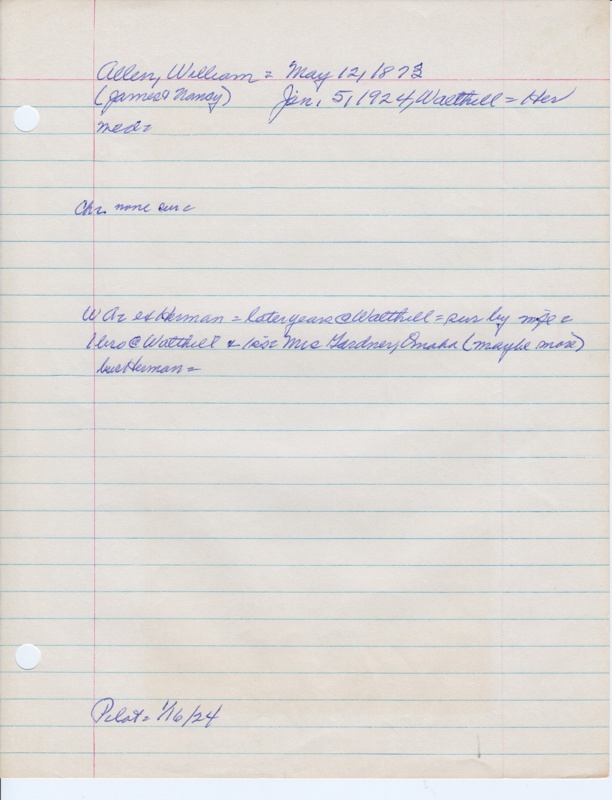 Allen, William = May 12, 1873
(James & Nancy) Jan. 5, 1924, Walthill = Her
med=
Chr none sur=
W Ar et Herman = later years @ Walthill = sur by wife =
1 bro @ Walthill & 1 sis Mrs Gardner, Omaha (maybe more)
bur Herman =
Pilot = 1/16/24